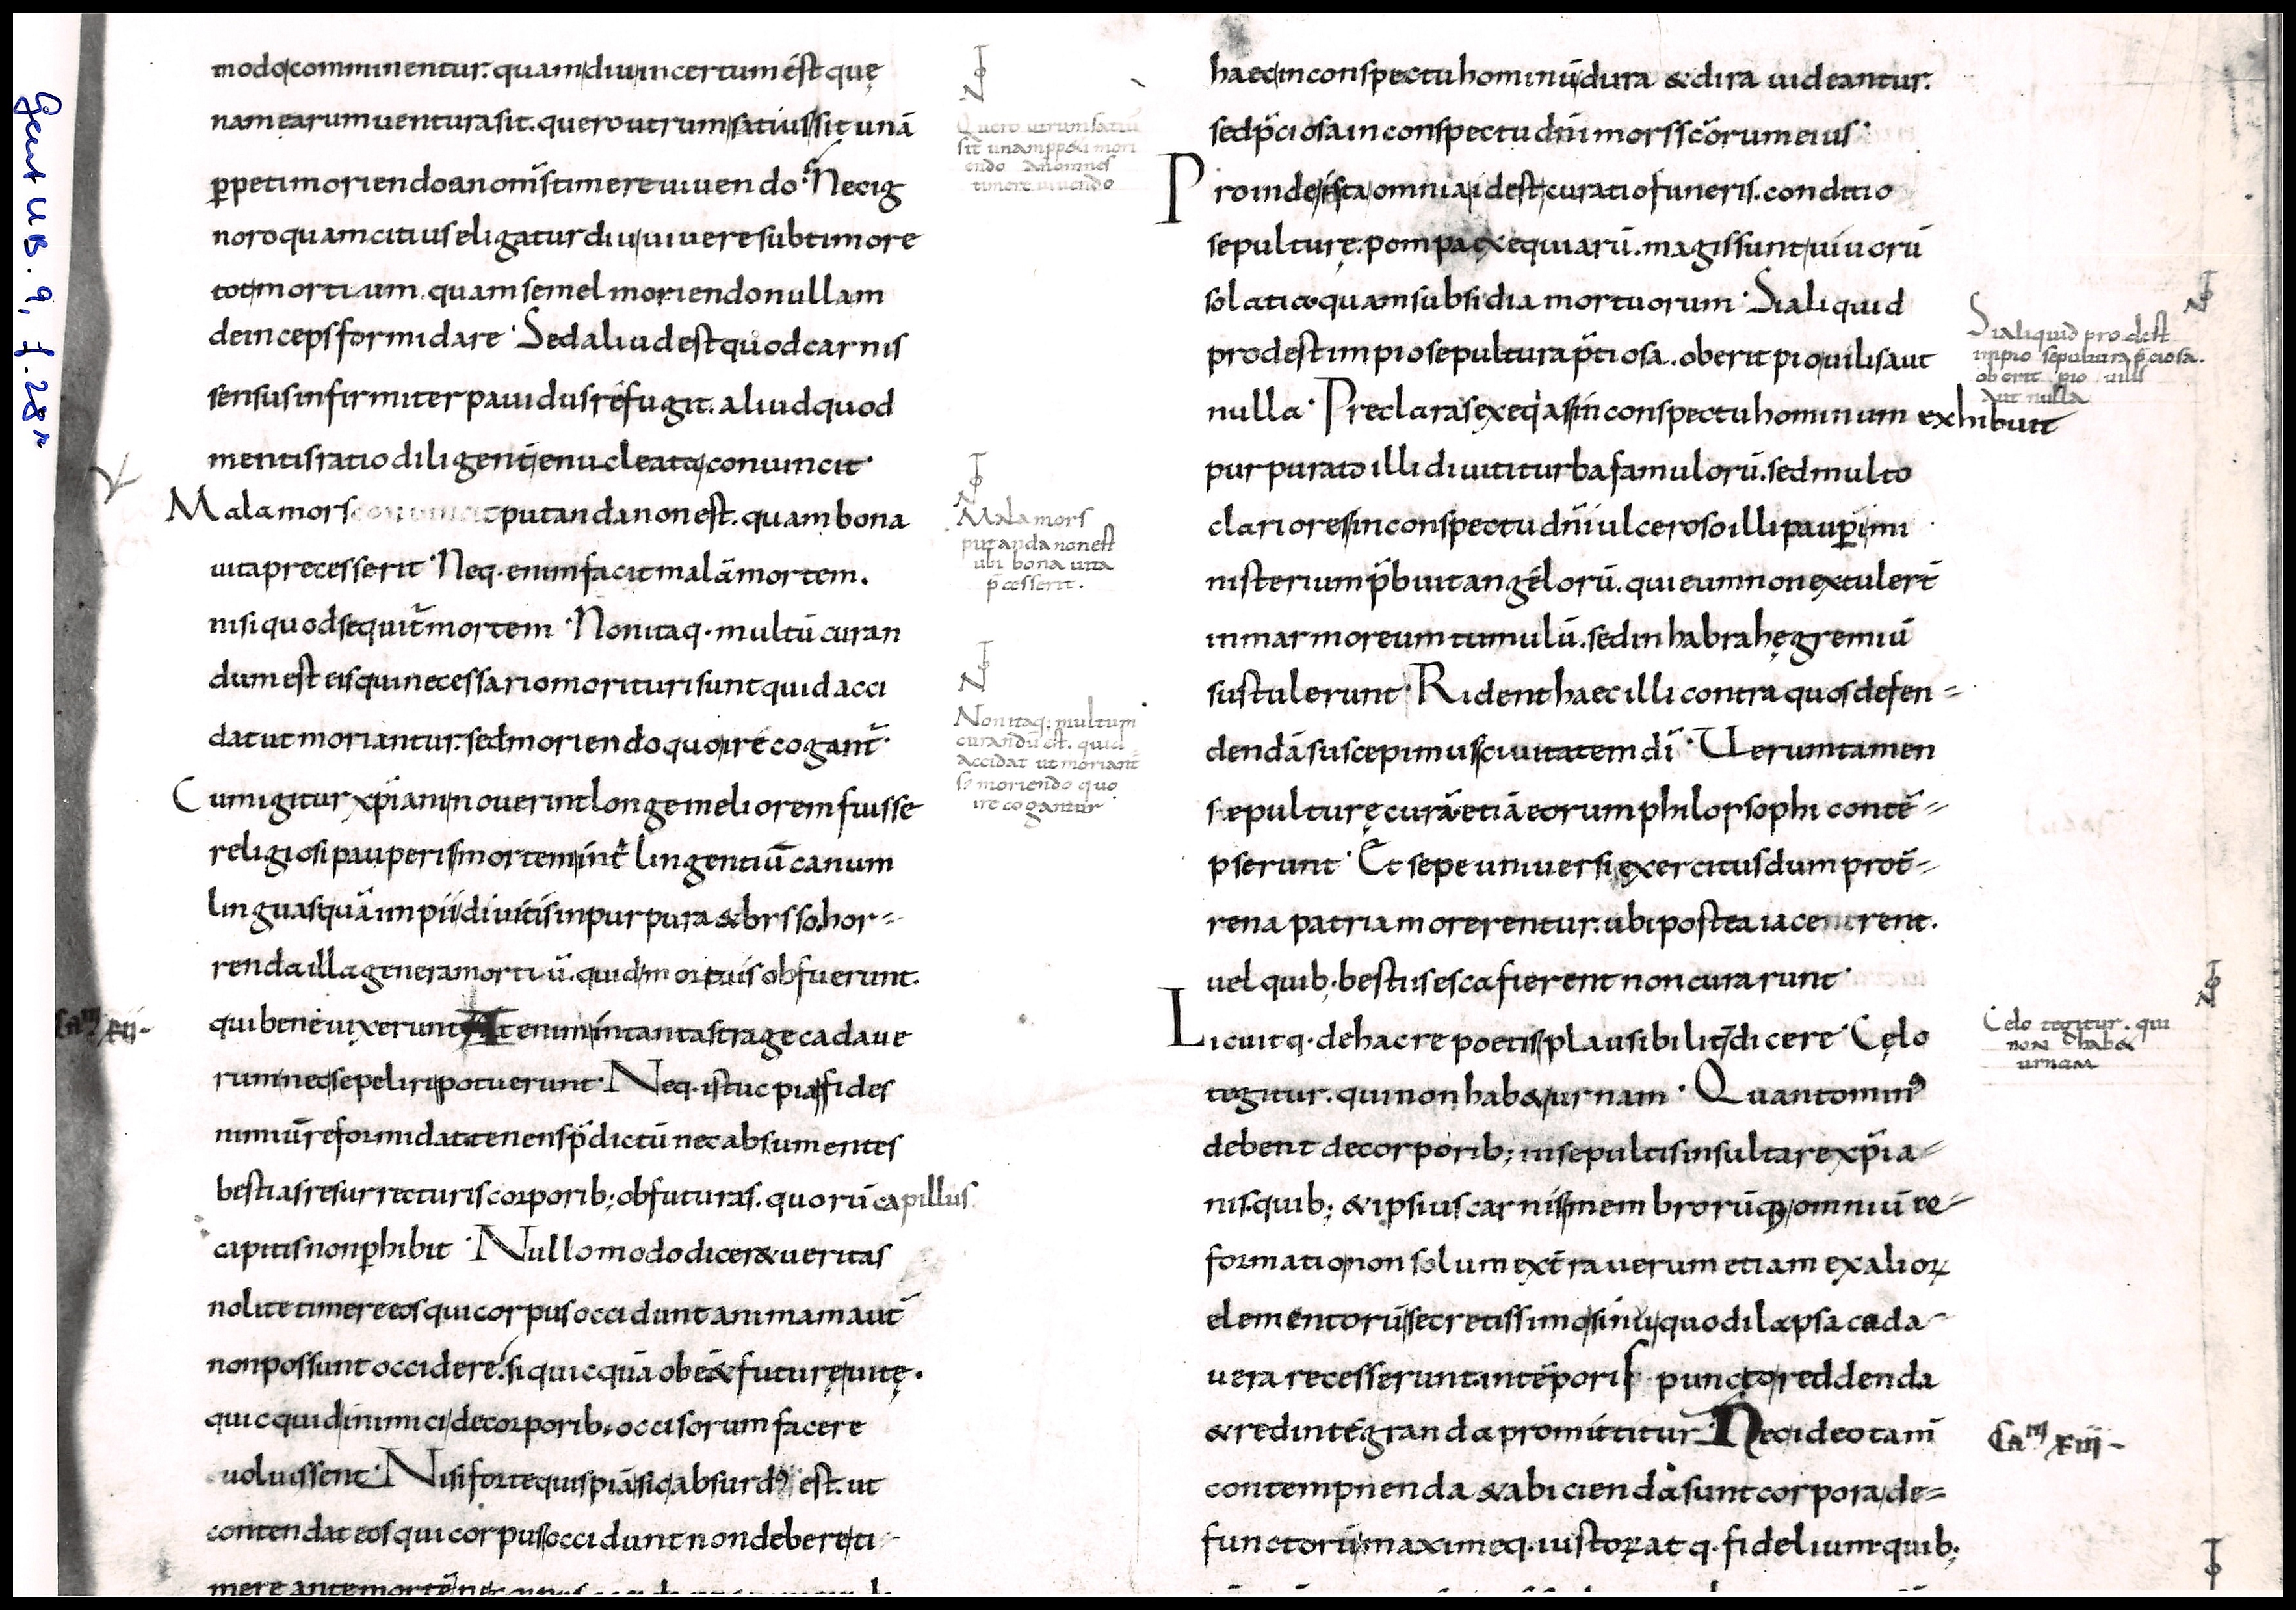 Gent UB. 9, f. 28r
modo comminentur. quam diu incertum est quę
nam earum uentura sit. quero utrum satius sit unā
ꝑpeti moriendo an om̄s timere uiuendo. Nec ig
noro quam citius eligatur diu uiuere sub timore
tot mortium. quam semel moriendo nullam
deinceps formidare. Sed aliud est quod carnis
sensus infirmiter pauidus refugit. aliud quod
mentis ratio diligent̄ enucleata conuincit.
Mala mors putanda non est. quam bona
uita precesserit. Neq. enim facit malā mortem.
nisi quod sequit̄ mortem. Non itaq. multū curan
dum est eis qui necessario morituri sunt quid acci
dat ut moriantur. sed moriendo quo ire cogant̄.
Cum igitur xp̄iani nouerint longe meliorem fuisse
religiosi pauperis mortem int̄ lingentiū canum
linguas quā impii diuitis in purpura & brsso. hor=
renda illa genera mortiū. quid mortuis obfuerunt.
qui bene uixerunt At enim in tanta strage cadaue
Cam xii-
rum nec sepeliri potuerunt. Neq. istuc pia fides
nimiū reformidat tenens p̄dictū nec absumentes
bestias resurrecturis corporib; obfuturas. quorū capillus
capitis non ꝑhibit. Nullo modo dicer& ueritas
nolite timere eos qui corpus occidunt animam aut̄
non possunt occidere. si quicquā obēē& futurę uitę.
quicquid inimici de corporib; occisorum facere
uoluissent. Nisi forte quispiā sic absurdꝰ est. ut
contendat eos qui corpus occidunt non debere ti-
mere ante mortē
Quero utrum satiū
sit unam ꝑp&i mori
endo an omnes
timere uiuendo
Mala mors
putanda non est
ubi bona uita
p̄cesserit.
Non itaq; multum
curandū est. quid
accidat ut moriant̄
s; moriendo quo
ire cogantur
haec in conspectu hominū dura & dira uideantur.
sed p̄ciosa in conspectu dn̄i mors sc̄orum eius.
Proinde ista omnia id est curatio funeris. conditio
sepulturę. pompa exequiarū. magis sunt uiuorū
solatia quam subsidia mortuorum. Si aliquid
prodest impio sepultura p̄tiosa. oberit pio uilis aut
nulla. Preclaras exeqias in conspectu hominum exhibuit
purpurato illi diuiti turba famulorū. sed multo
clariores in conspectu dn̄i ulceroso illi pauꝑi mi
nisterium p̄buit angelorū. qui eum non extuler̄
in marmoreum tumulū. sed in habrahę gremiū
sustulerunt. Rident haec illi contra quos defen=
dendā suscepimus ciuitatem dī. Uerumtamen
sepulturę curā etiā eorum philorsophi contē=
pserunt. Et sepe uniuersi exercitus dum pro t̄=
rena patria morerentur. ubi postea iacerent.
uel quib; bestiis esca fierent non curarunt.
Licuitq. de hac re poetis plausibilit̄ dicere. Cęlo
tegitur. qui non hab& urnam. Quanto minꝰ
debent de corporib; insepultis insultare xp̄ia=
nis. quib; & ipsius carnis membrorūq; omniū re=
formatio non solum ex t̄ra uerum etiam ex alioꝝ
elementorū secretissimo sinu quo dilapsa cada=
uera recesserunt. in tēporis puncto reddenda
& redintegranda promittitur. Nec ideo tam̄
contempnenda & abicienda sunt corpora de=
functorū maximeq. iustoꝝ atq. fidelium quib;
Si aliquid prodest
impio sepultura p̄ciosa.
oberit pio uilis
aut nulla
Celo tegitur. qui
non hab&
urnam
Cam xiii-